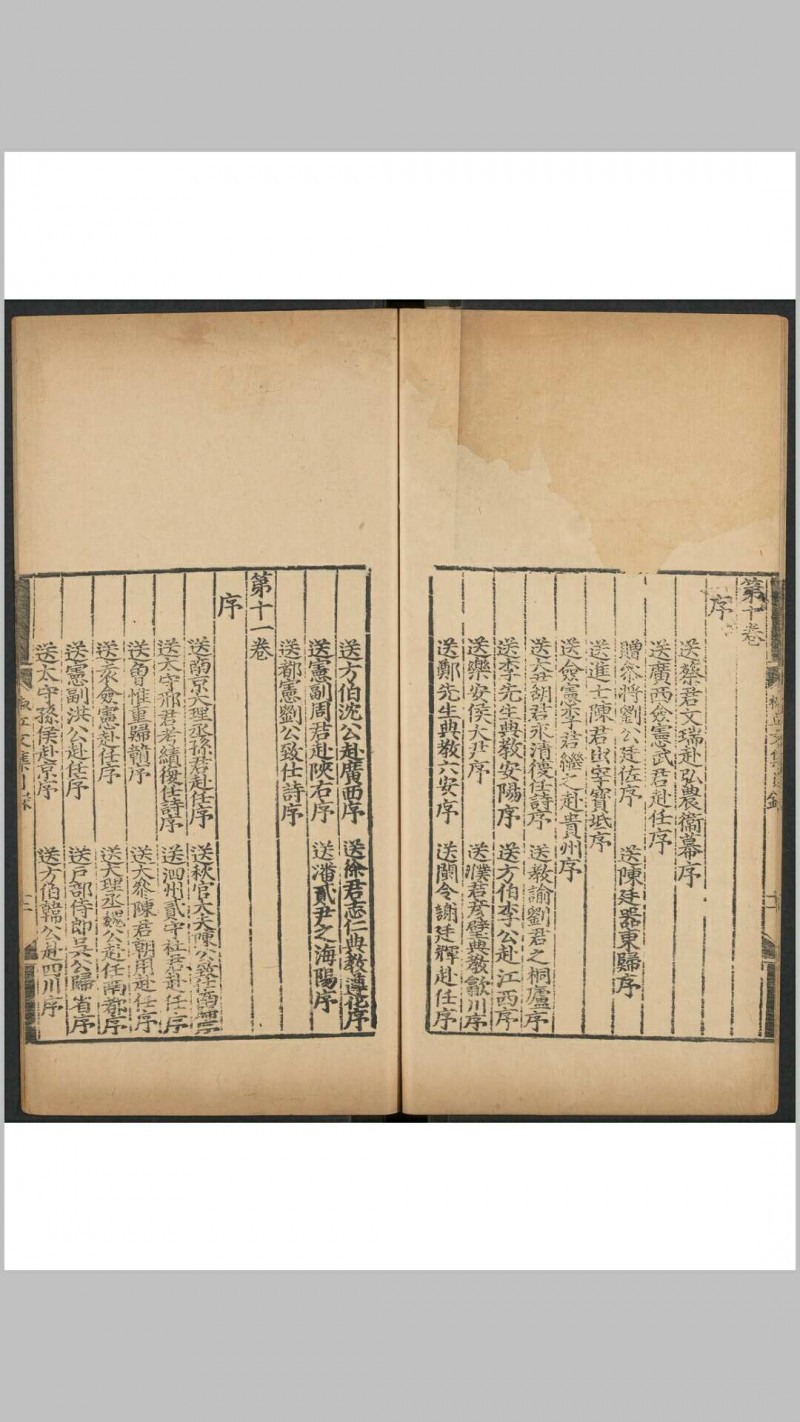 第十卷
序
送蔡君文瑞赴弘農衞幕序
送廣西僉憲武君赴任序
贈叅將劉公廷佐序 送陳廷器東歸序
送進士陳君出宰寶坻序
送僉憲李君繼之赴貴州序
送大尹胡君永清復任詩序 送教諭劉君之桐廬序
送李先生典教安陽序 送方伯李公赴江西序
送樂安侯大尹序 送濮君彦璧典教歙川序
送鄭先生典教六安序 送閬令謝廷輝赴任序
送方伯沈公赴廣西序 送徐君志仁典教遵化序
送憲副周君赴陜右序 送潘貳尹之海陽序
送都憲劉公致仕詩序
第十一卷
序
送南京大理丞孫君赴任序 送秋官大夫陳公致仕南歸序
送太守邢君考績復任詩序 送泗州貳守杜君赴任序
送曾惟重歸贛序 送大叅陳君朝用赴任序
送袁僉憲赴任序 送大理丞魏公赴任南都序
送憲副洪公赴任序 送戶部侍郎吳公歸省序
送太守孫侯赴京序 送方伯韓公赴四川序
文集目錄